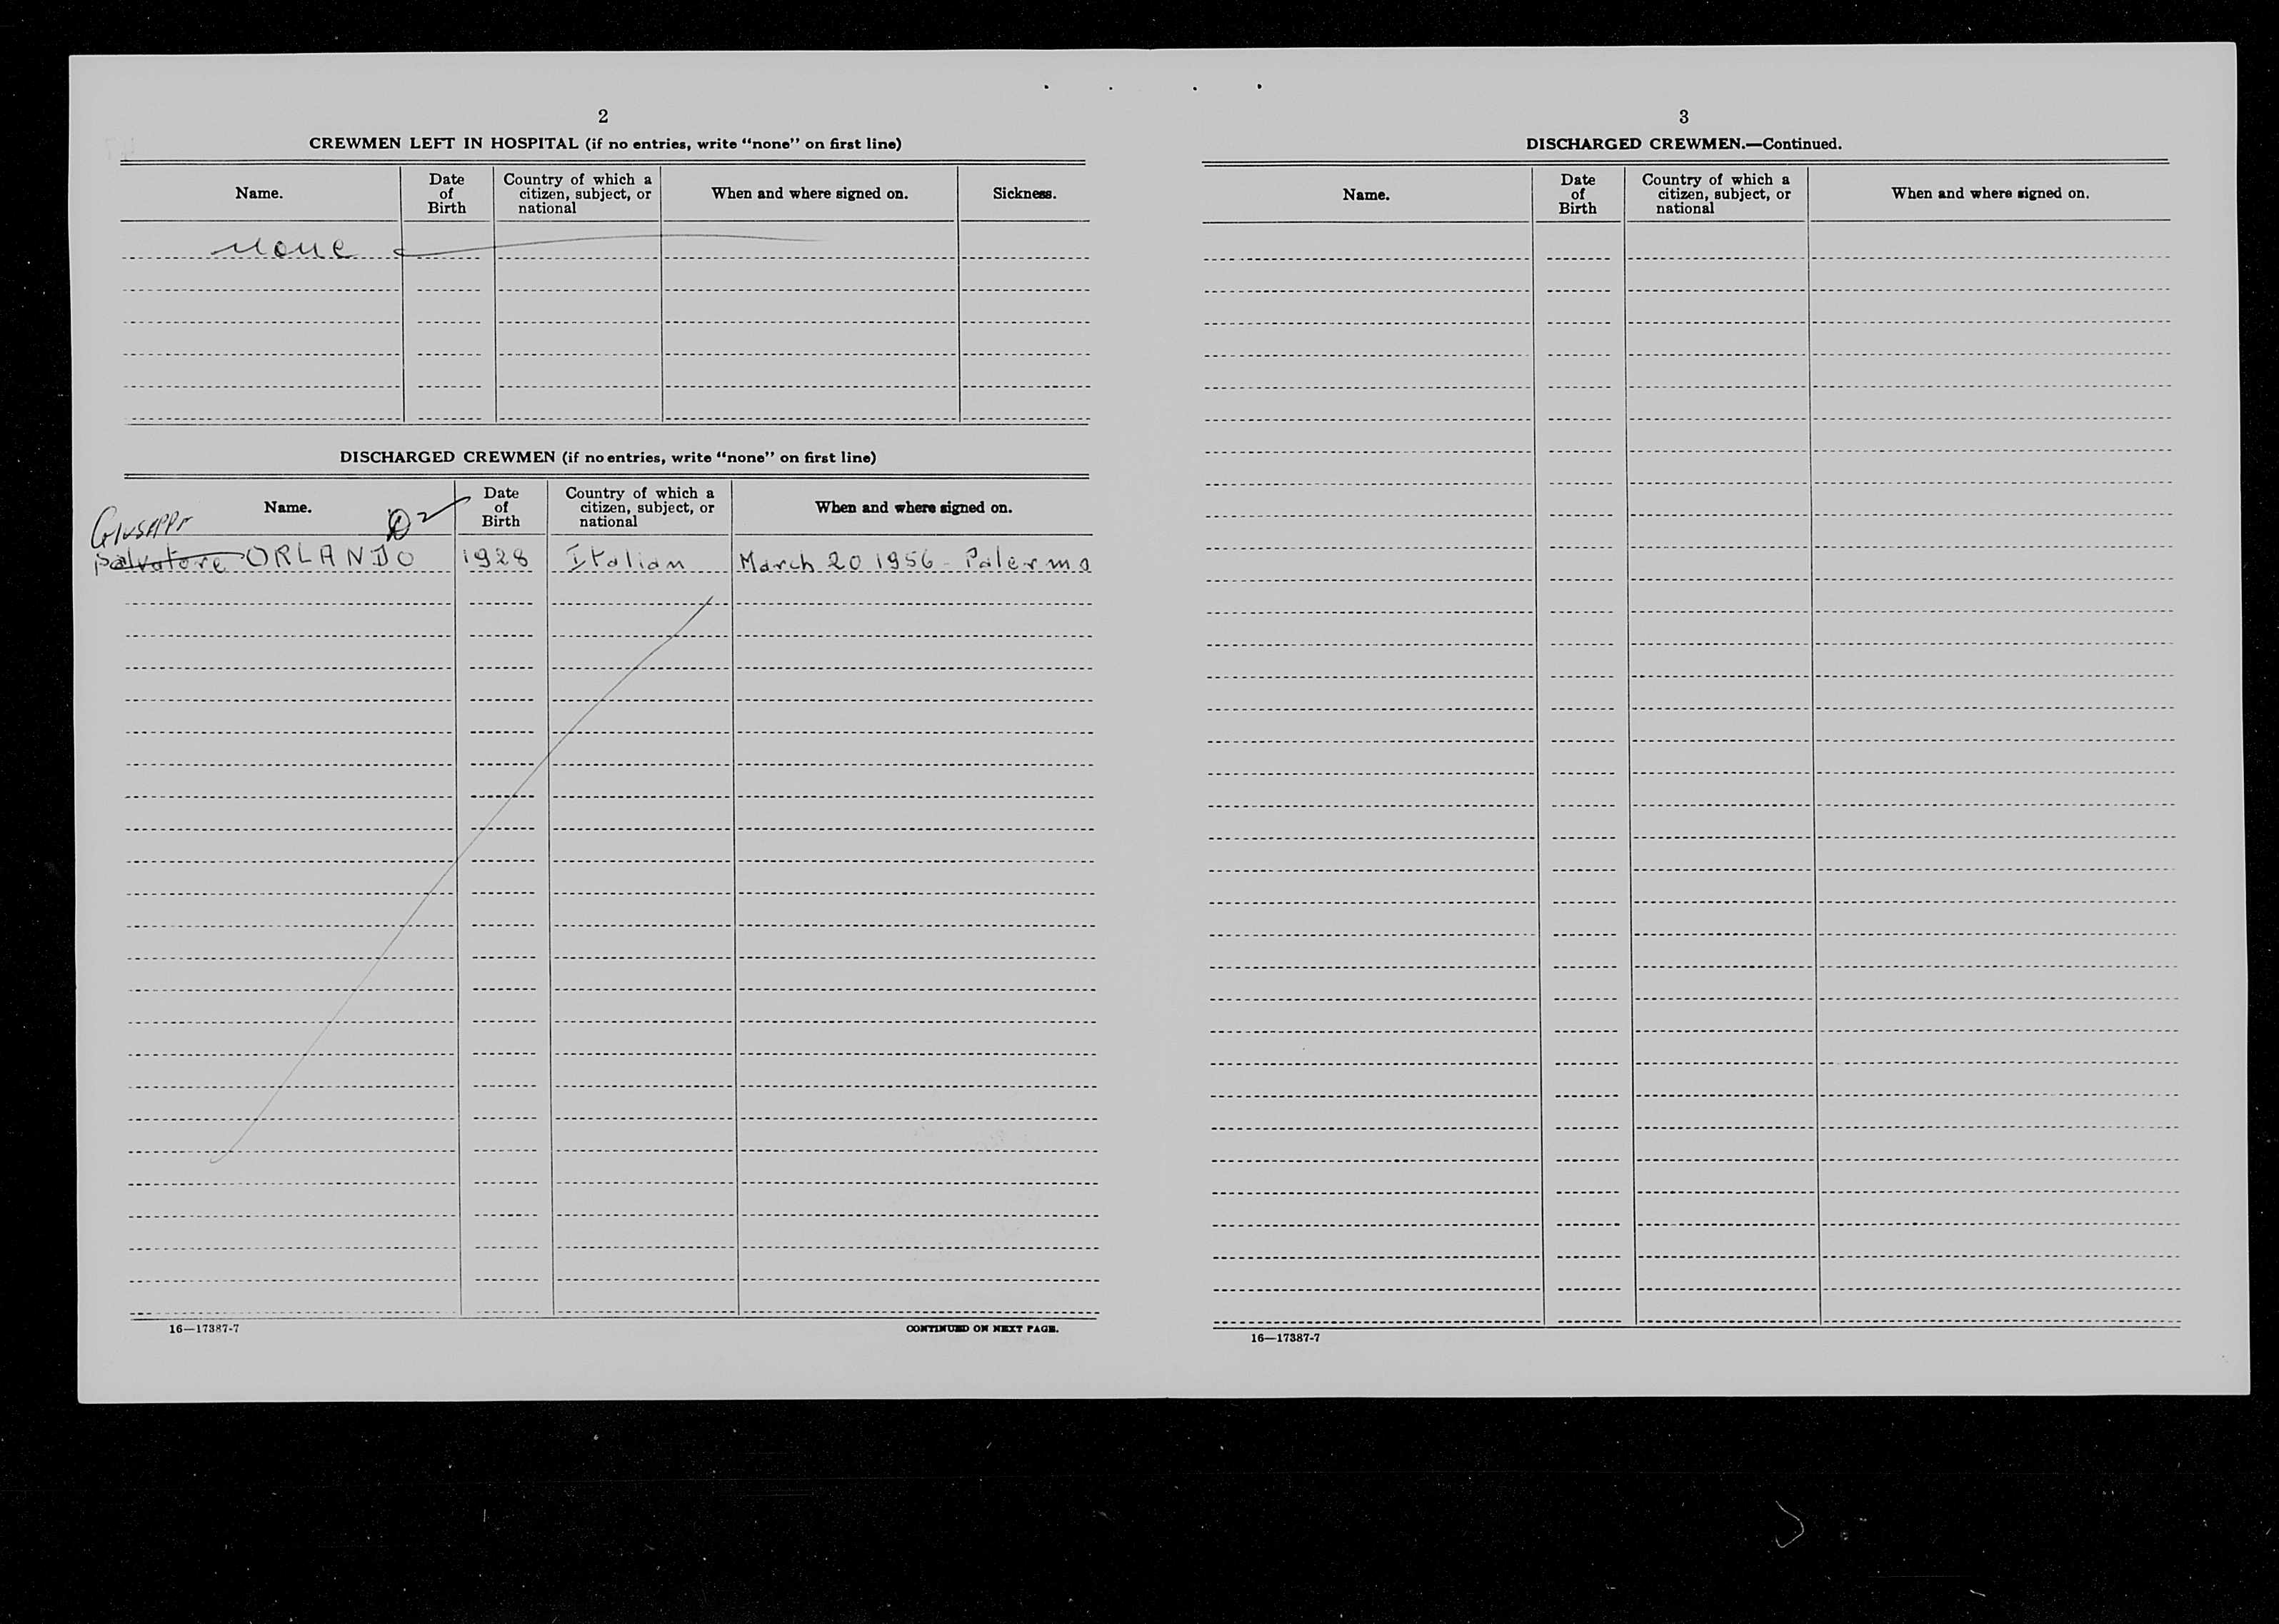 2
CREWMEN LEFT IN HOSPITAL (if no entries, write “none” on first line)
Name. Date of Birth Country of which a citizen, subject, or national When and where signed on. Sickness.
none
DISCHARGED CREWMEN (if no entries, write “none” on first line)
Name. Date of Birth Country of which a citizen, subject, or national When and where signed on.
Giuseppe
Salvatore ORLANDO 1928 Italian March 20 1956 - Palermo
16—17387-7 CONTINUED ON NEXT PAGE.
3
DISCHARGED CREWMEN.—Continued.
Name. Date of Birth Country of which a citizen, subject, or national When and where signed on.
16—17387-7